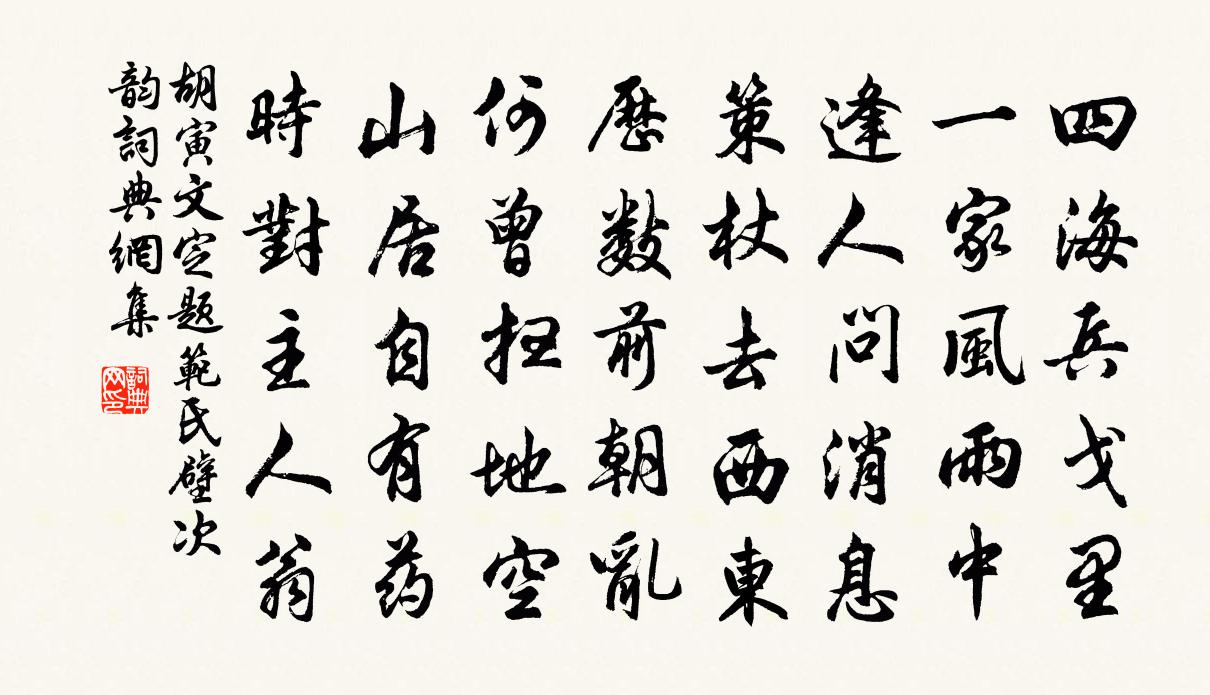 四海兵戈里
一家風雨中
逢人問消息
策杖去西東
歷數前朝亂
何曾掃地空
山居自有药
時對主人翁
胡寅文定題範氏壁次
韵詞典網集
詞典网印